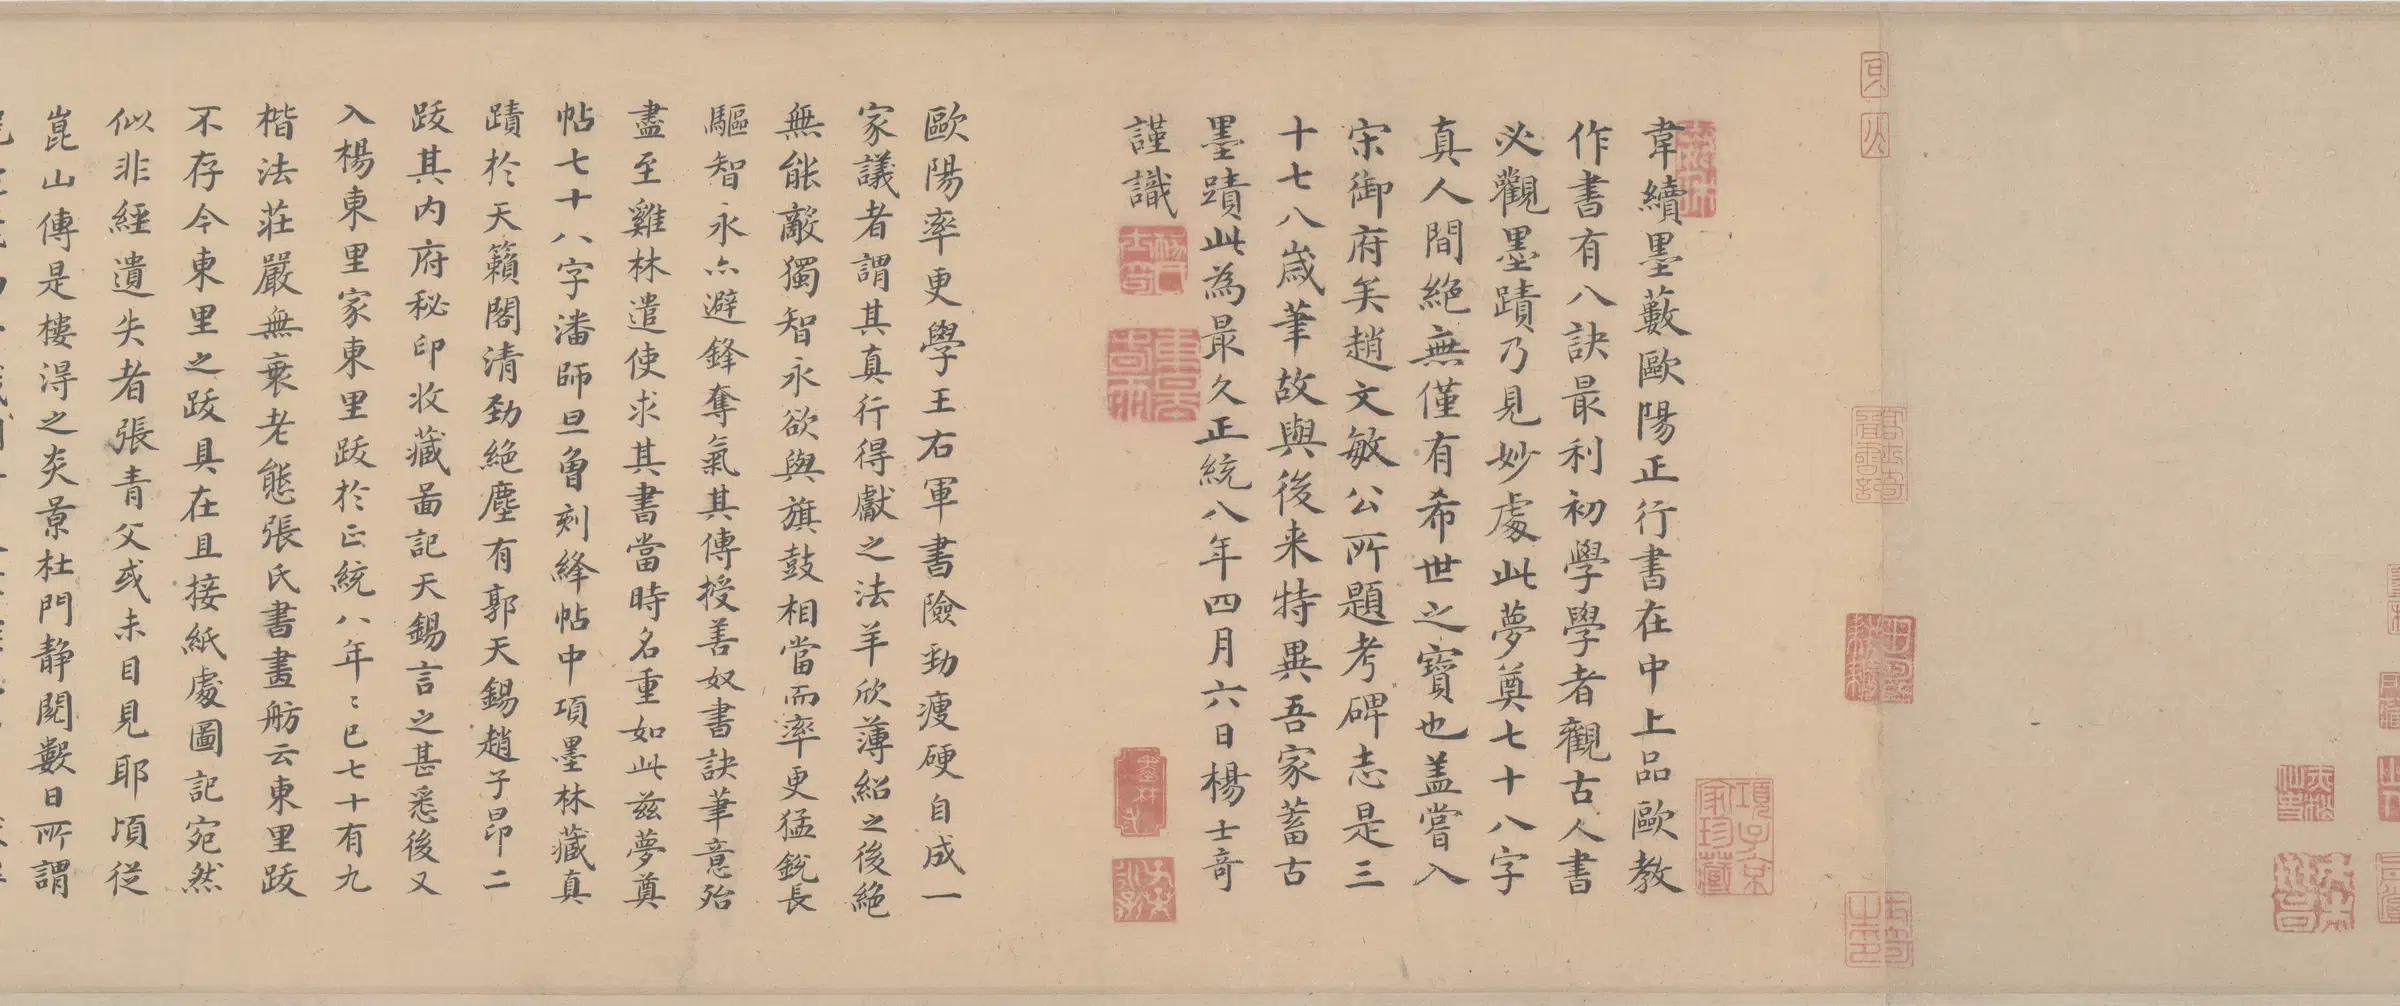 韋續墨藪歐陽正行書在中上品歐教
作書有八訣最利初學學者觀古人書
必觀墨蹟乃見妙處此夢奠七十八字
真人間絕無僅有希世之寶也蓋嘗入
宋御府矣趙文敏公所題考碑志是三
十七八歲筆故與後来特異吾家蓄古
墨蹟此為最久正統八年四月六日楊士奇
謹識
歐陽率更學王右軍書險勁瘦硬自成一
家議者謂其真行得獻之法羊欣薄紹之後絕
無能敵獨智永欲與旗鼓相當而率更猛銳長
驅智永亦避鋒奪氣其傳授善奴書訣筆意殆
盡至雞林遣使求其書當時名重如此茲夢奠
帖七十八字潘師旦曾刻絳帖中項墨林藏真
蹟於天籟閣清勁絕塵有郭天錫趙子昂二
跋其內府秘印收藏啚記天錫言之甚悉後又
入楊東里家東里跋於正統八年〻已七十有九
楷法莊嚴無衰老態張氏書畫舫云東里跋
不存今東里之跋具在且接紙處圖記宛然
似非經遺失者張青父或未目見耶頃從
崑山傳是樓淂之炎景杜門静閱數日所謂
項子京家珍藏